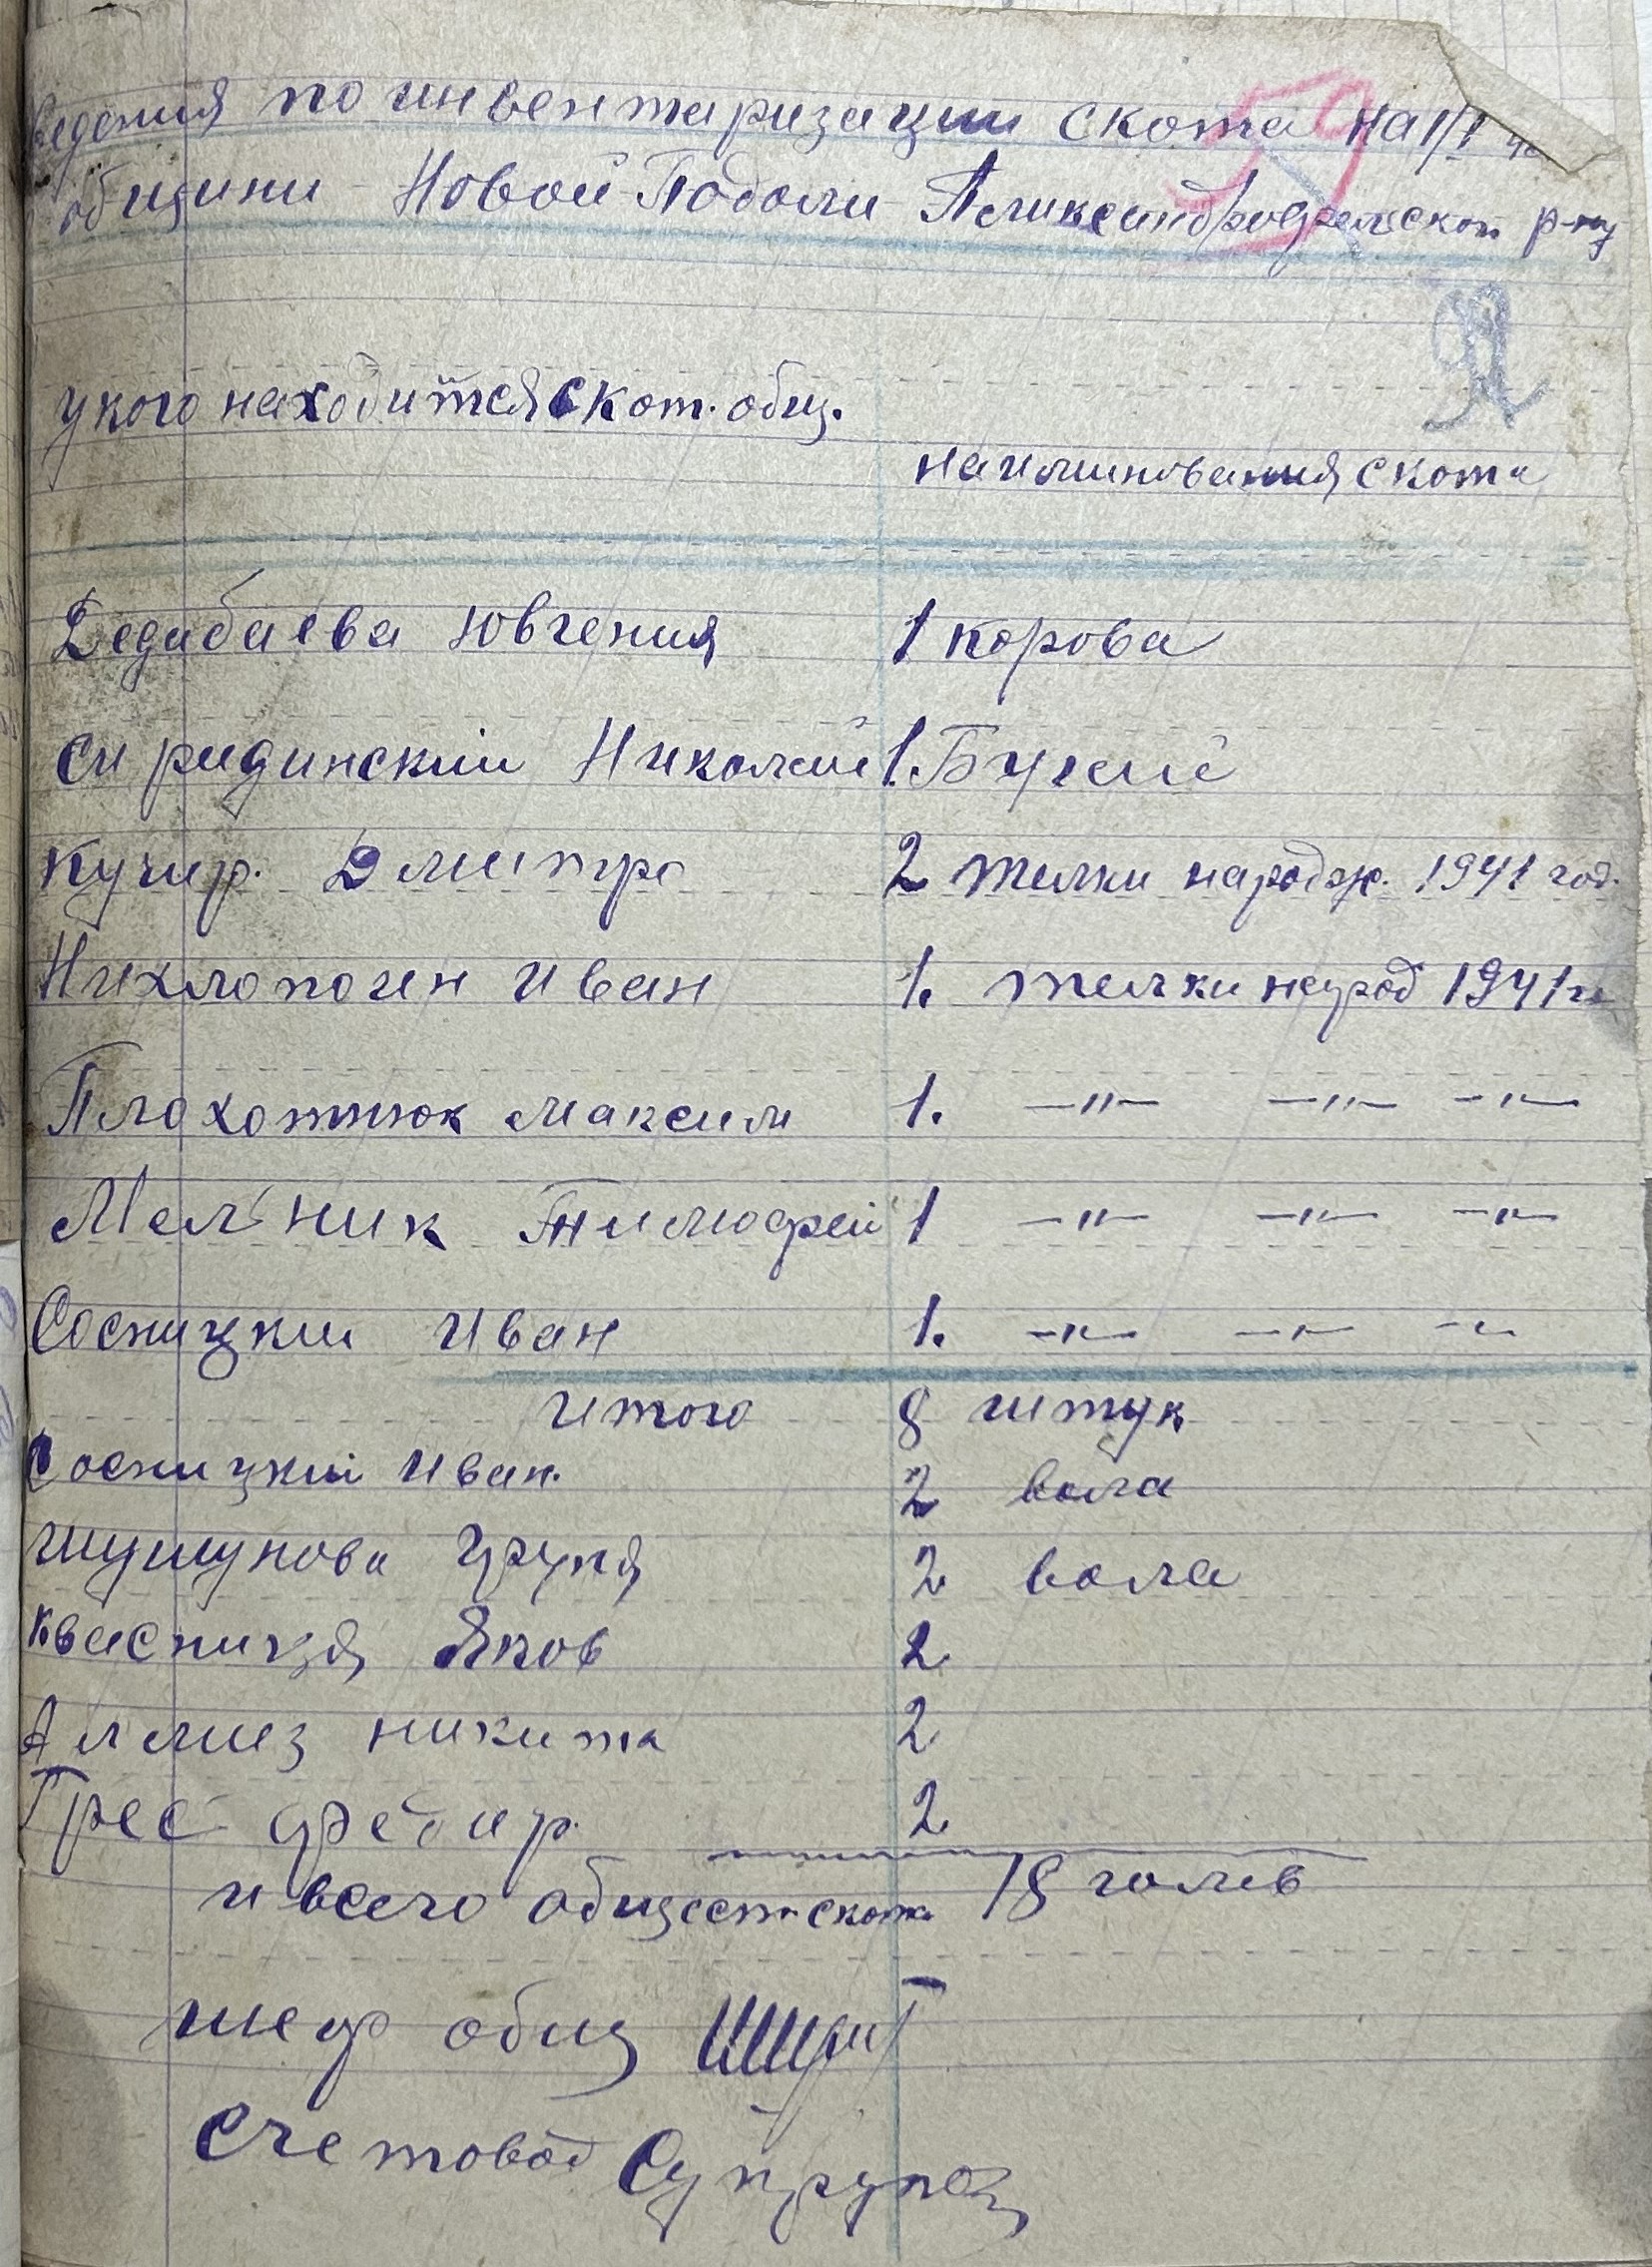 ведения по инвентаризации скота на 1/I
общини Новой Подоли Аликсандрофельской р-ну
у кого находится скот. общ.
наиминования скота
Дедабаева Ювгения 1 корова
Спиридинский Николай 1. Бугай
Кучир. Дмитро 2 телки народж. 1941 год.
Нихлопочен Иван 1. телки народ 1941 г
Плохотнюк Максим 1. —"— —"— —"—
Мельник Тимофей 1 —"— —"— —"—
Сосницкий Иван 1. —"— —"— —"—
итого 8 штук
Сосницкий Иван. 2 вола
Шушунова Груня 2 вола
Квасниця Яков 2
Аллмиз никита 2
Грес федир. 2
и всего общест. скота 18 голив
шеф общ
Счетовод Супрунец